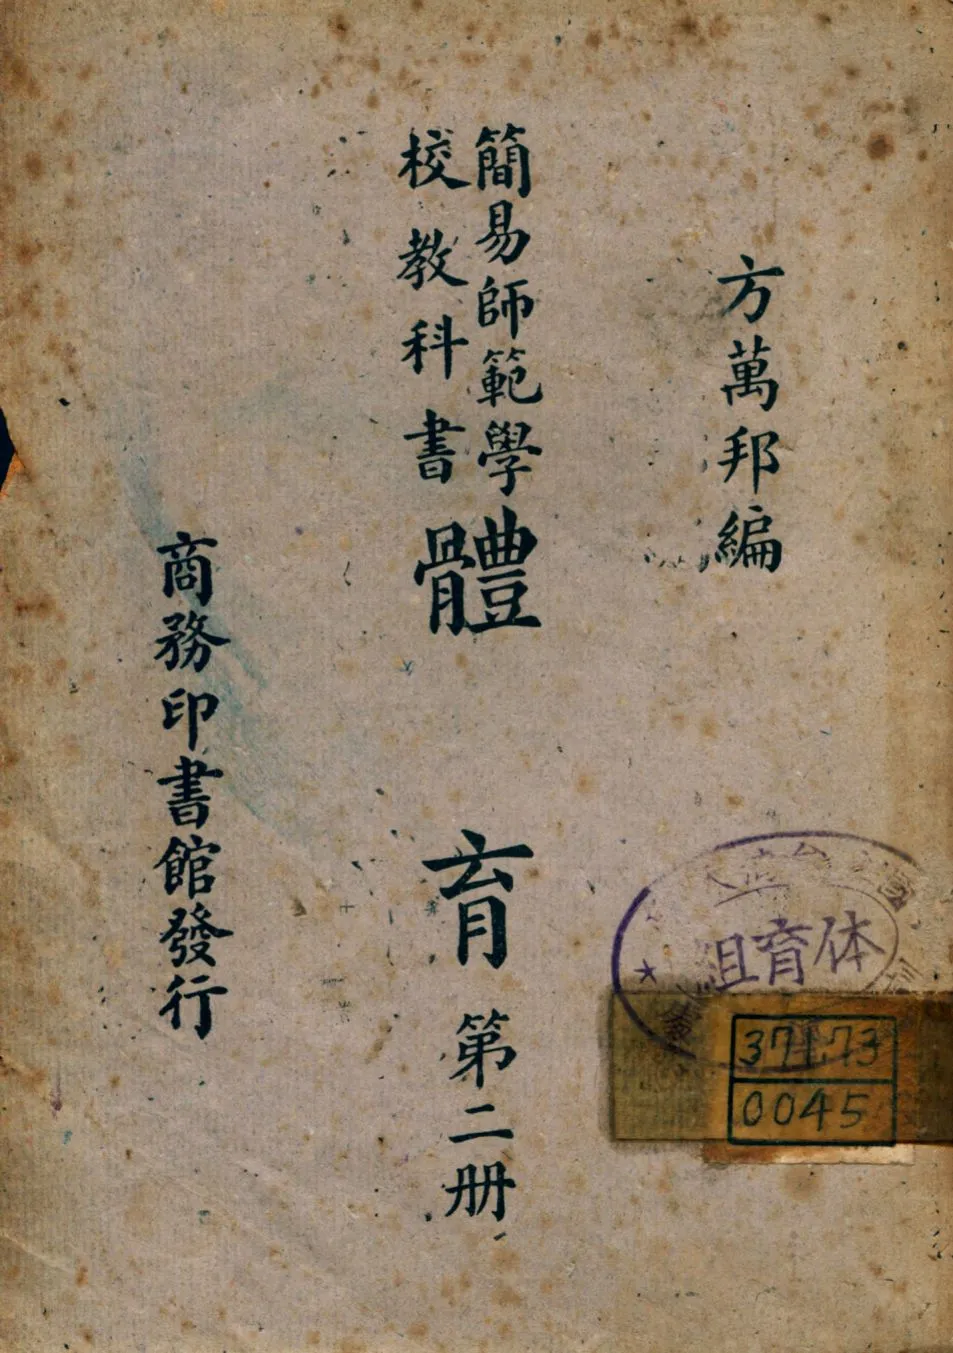 方萬邦編
簡易師範學
校教科書
體育第二册
商務印書館發行
体育組
37173
0045